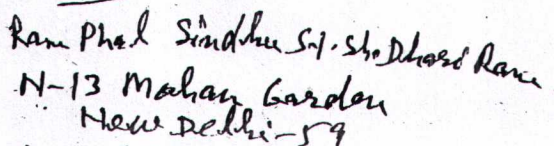 Ram Phal Sindhu S/. Sh. Dhari Ram
N-13 Mohan Garden
New Delhi-59